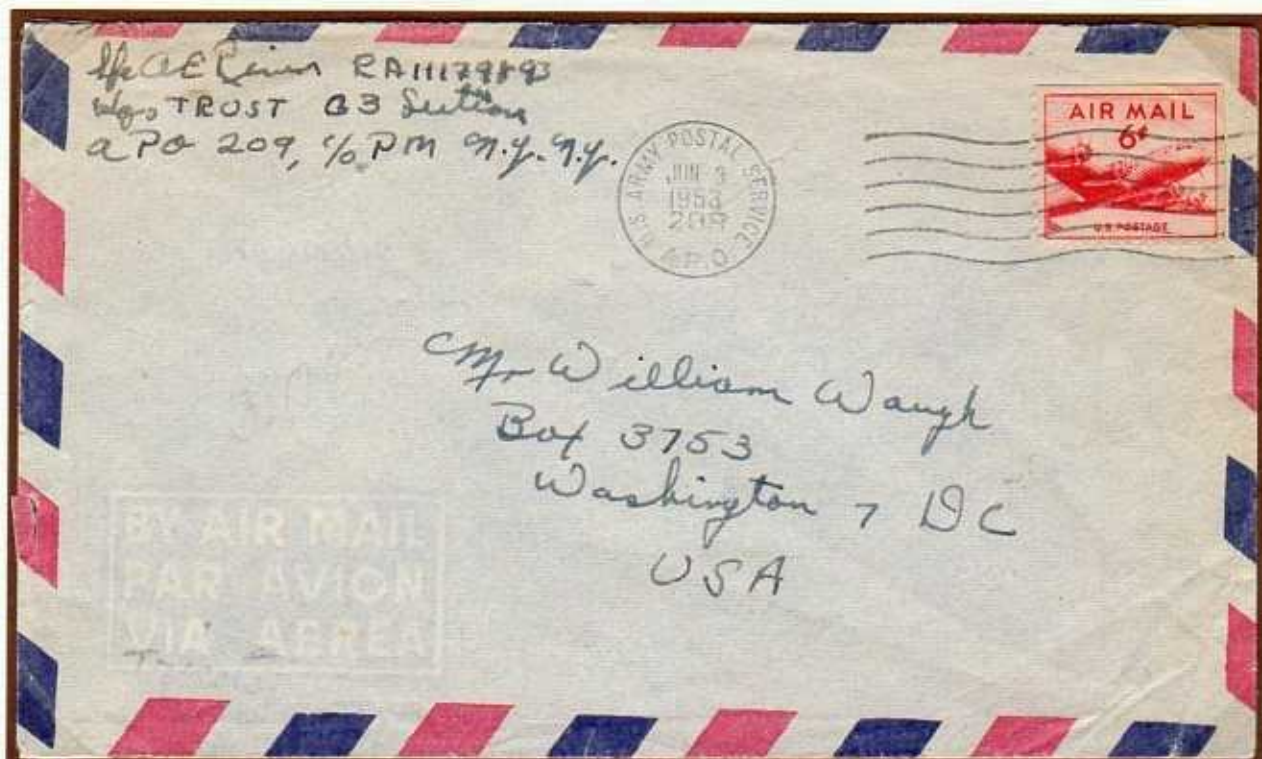 RA11179893
Hq, TRUST G3 Section
APO 209, c/o PM N.Y. N.Y.
U.S. ARMY POSTAL SERVICE
JUN 3
1953
A.P.O.
AIR MAIL
6¢
U.S. POSTAGE
Mr William Waugh
Box 3753
Washington 7 DC
USA
BY AIR MAIL
PAR AVION
VIA AEREA